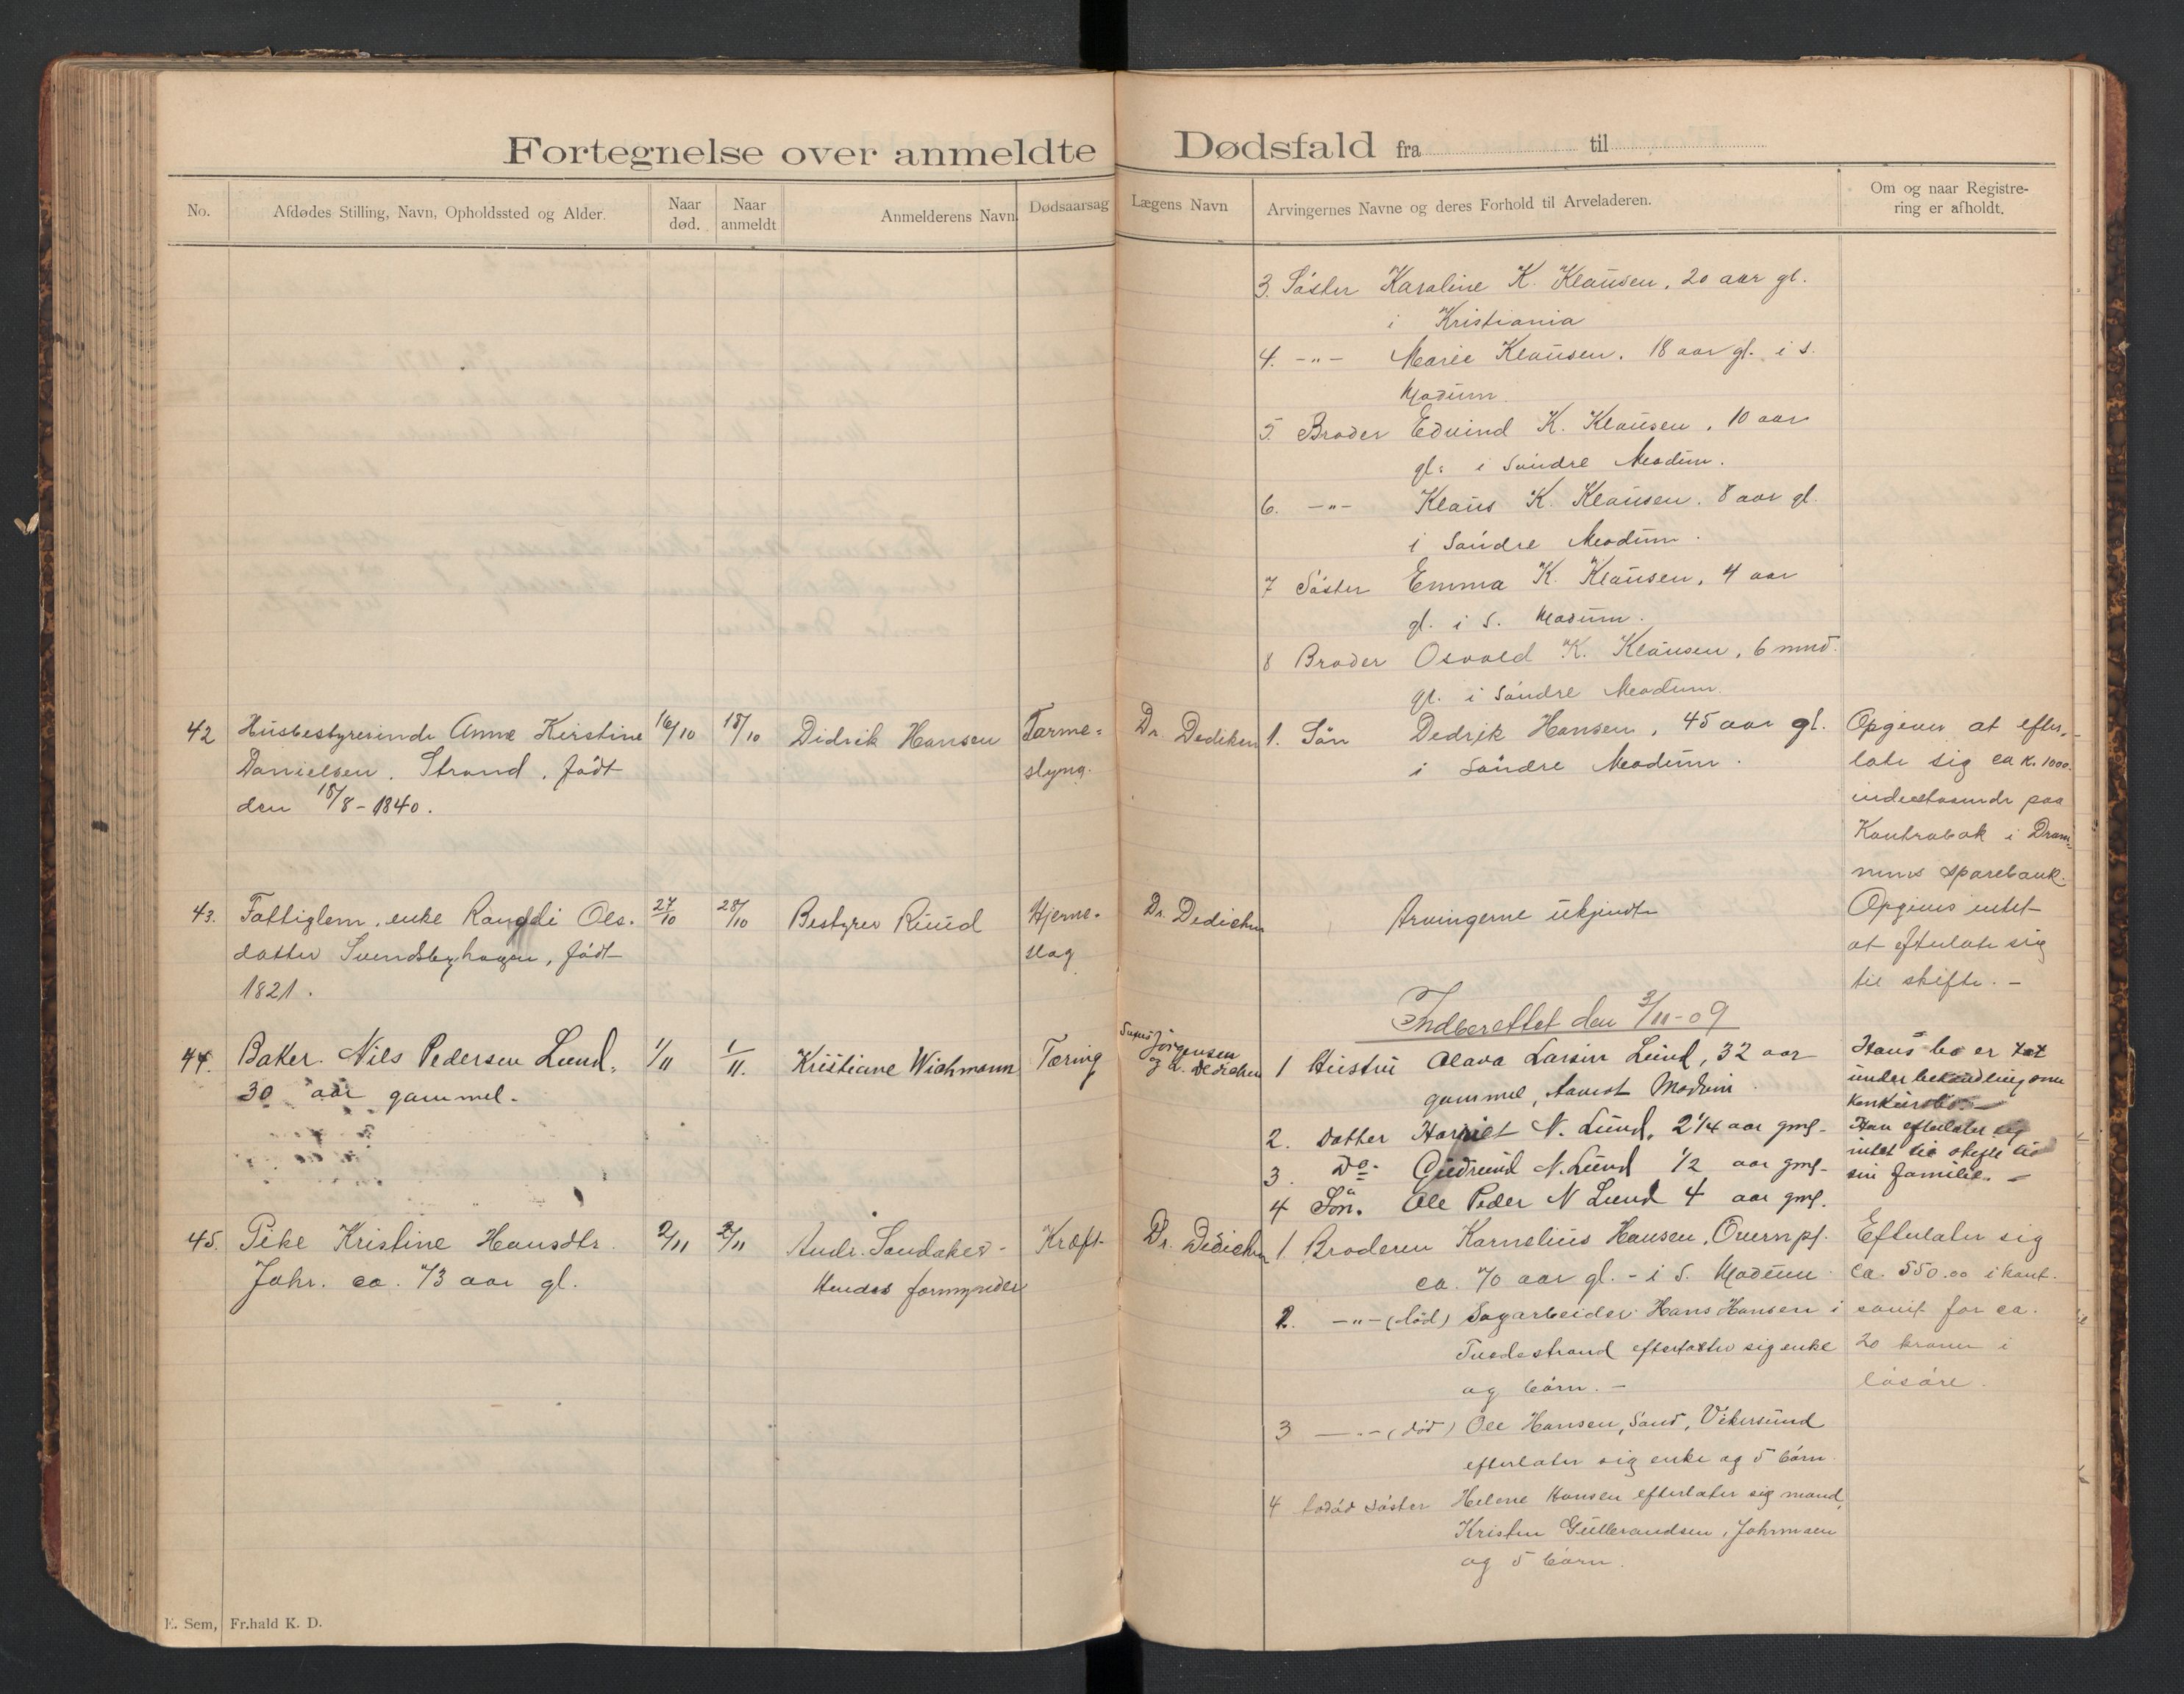 Fortegnelse over anmeldte Dødsfald fra til
No.
Afdødes Stilling, Navn, Opholdssted og Alder.
Naar død.
Naar anmeldt
Anmelderens Navn.
Dødsaarsag
Lægens Navn
Arvingernes Navne og deres Forhold til Arveladeren.
Om og naar Registre-
ring er afholdt.
3. Söster Karoline K. Klausen, 20 aar gl.
i Kristiania
4. -"- Marie Klausen. 18 aar gl. i S.
Modum.
5. Broder Edvind K. Klausen, 10 aar
gl. i Söndre Modum.
6. -"- Klaus K. Klausen. 8 aar gl.
i Söndre Modum.
7 Söster Emma K. Klausen, 4 aar
gl. i S. Modum.
8 Broder Osvald K. Klausen, 6 mnd.
gl. i Söndre Modum.
42 Husbestyrerinde Anne Kirstine
Danielsen. Strand, født
den 18/8-1840.
16/10
18/10
Didrik Hansen
Tarme-
slyng.
Dr. Dedichen
1. Sön Dedrik Hansen, 45 aar gl.
i Söndre Modum.
Opgives at efter-
late sig ca k. 1000.
indestaaende paa
Kontrabok i Dram-
mens sparebank.
43. Fattiglem, enke Rangdi Ols.
datter Svendsbyhagen, født
1821.
27/10
28/10
Bestyrer Ruud
Hjerne-
slag
Dr. Dedichen
Arvingerne ukjendte
Opgives intet
at efterlate sig
til skifte. -
Indberettet den 3/11-09
44. Baker Nils Pedersen Lund.
30 aar gammel.
1/11
1/11.
Kristiane Wichmann
Tæring
Jörgensen
og Dr. Dedichen
1 Hustru Olava Larsen Lund, 32 aar
gammel, Aamot Modum
2. Datter Harriet N. Lund, 2 1/4 aar gml.
3. Do. Gudrund N. Lund 1/2 aar gml.
4 Sön. Ole Peder N Lund 4 aar gml.
Hans bo er tat
under behandling som
konkursbo. -
Han efterlater sig
intet til skifte til
sin familie. -
45. Pike Kristine Hansdtr.
Johr. ca. 73 aar gl.
2/11
2/11
Andr. Sandaker -
Hendes formynder
Kræft
Dr. Dedichen
1 Broderen Kornelius Hansen, Overn pl.
ca. 70 aar gl. - i S. Modum
2. -"- (död) Sagarbeider Hans Hansen i
Tvedestrand efterlater sig enke
og börn. -
3 -"- (död) Ole Hansen, Sand, Vikersund
efterlater sig enke og 5 börn.
4 söster Helene Hansen efterlater sig mand
Kristen Gulbrandsen, Johrmoen
og 5 börn.
Efterlater sig
ca. 550.00 i kont.
samt for ca.
20 kroner i
lösöre.
E. Sem, Fr.hald K. D.